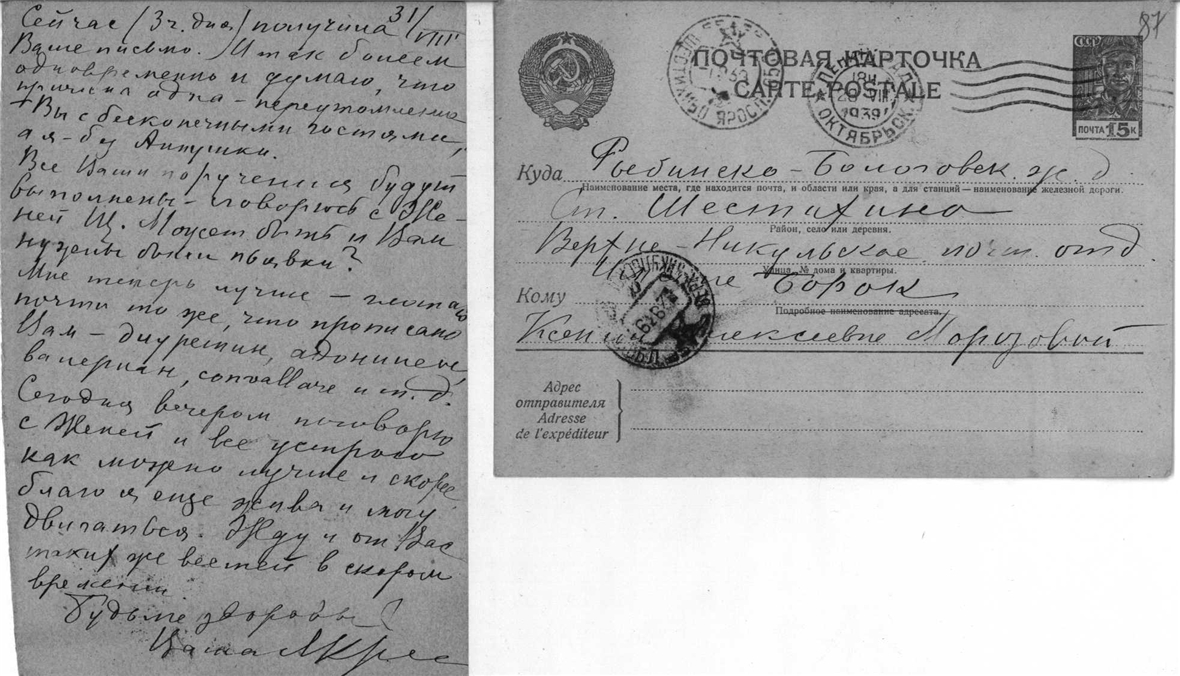 Сейчас (3 ч. дня) получила 31/VIII
Ваше письмо. Итак болеем
одновременно и думаю, что
причина одна - переутомление
Вы с бесконечными гостями,
а я - без Аннушки.
Все Ваши поручения будут
выполнены - сговорюсь с Же-
ней Щ. Может быть и Вам
нужны были пиявки?
Мне теперь лучше - глотаю
почти то же, что прописано
Вам - диуретин, адонилен,
валериан, convallare и т.д.
Сегодня вечером поговорю
с Женей и все устрою
как можно лучше и скорее,
благо я еще жива и могу
двигаться. Жду и от Вас
таких же вестей в скором
времени.
Будьте здоровы!
Ваша АКрес
87
ПОЧТОВАЯ КАРТОЧКА
CARTE POSTALE
СССР
ПОЧТА 15 К
18 Ч
VIII
1939
ОКТЯБРЬСК
ЯРОСЛ. ОБ
Куда Рыбинско-Бологовск. ж. д
Наименование места, где находится почта, и области или края, а для станций — наименование железной дороги.
ст. Шестихино
Район, село или деревня.
Верхне-Никульское почт. отд.
Улица, № дома и квартиры.
Кому Борок
Подробное наименование адресата.
Морозовой
Адрес
отправителя
Adresse
de l'expéditeur